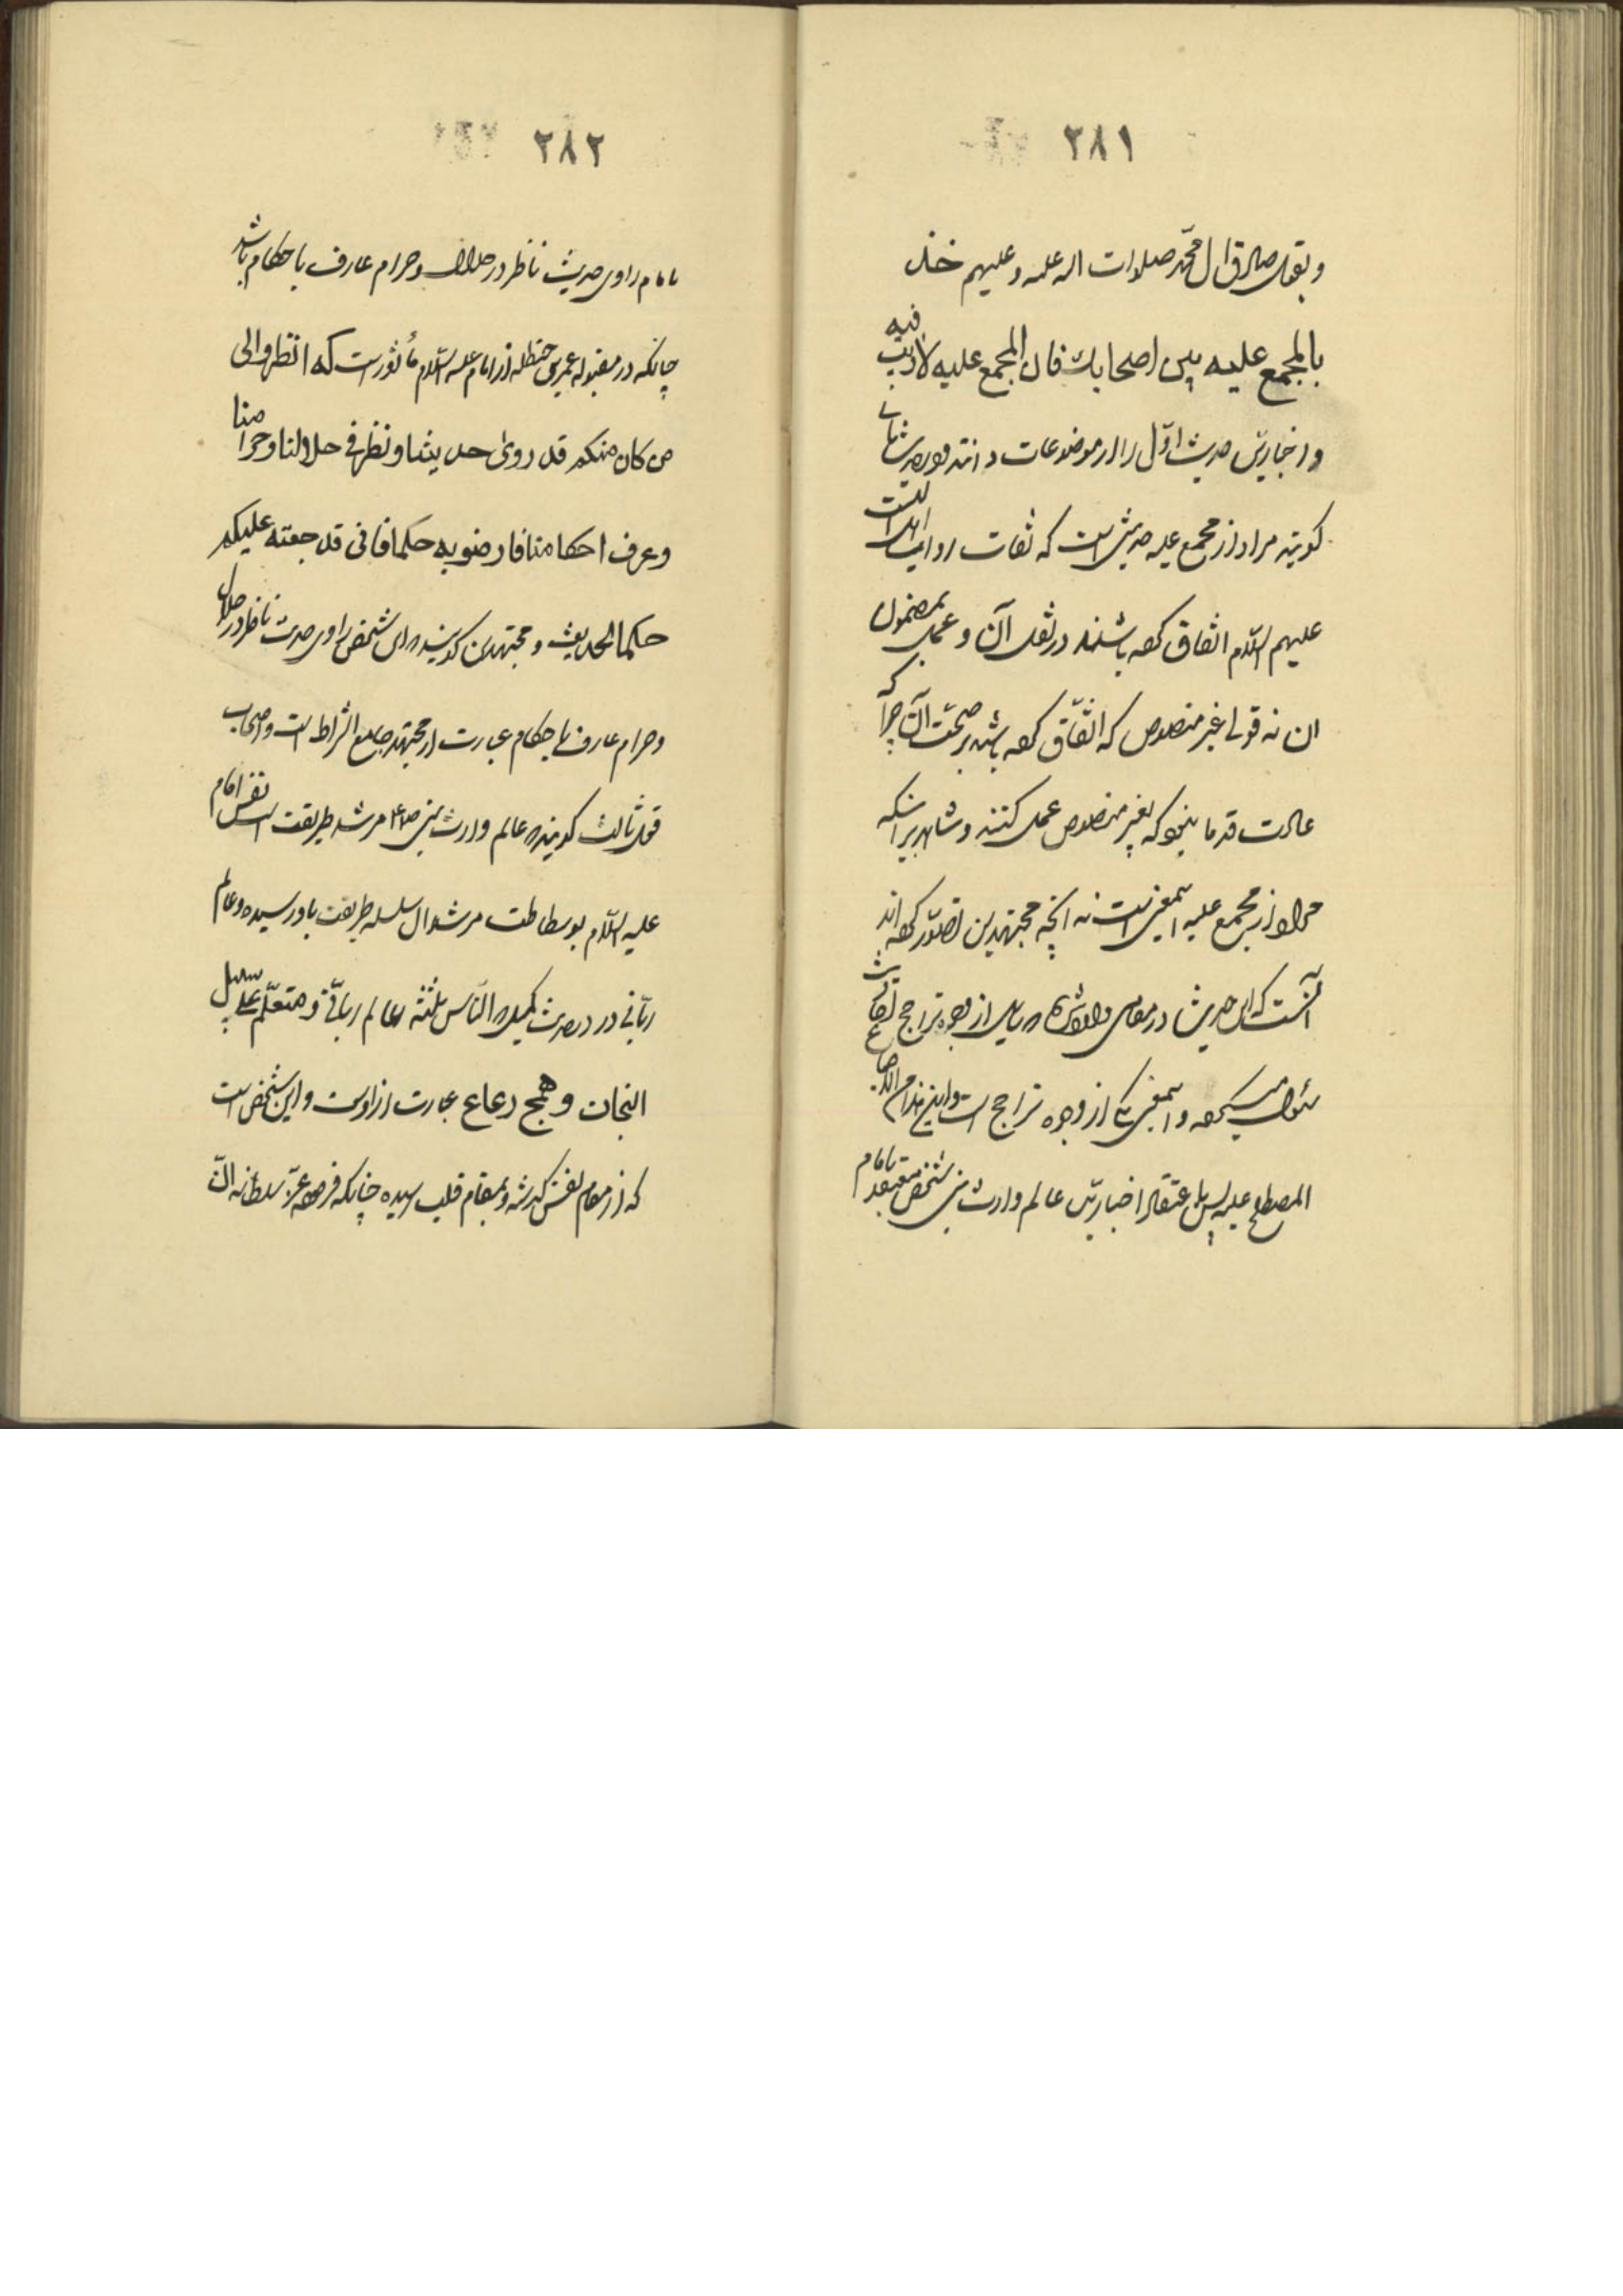 ۲۸۱
و بقول صادق ال محمّد صلوات الله علیه و علیهم خذ
بالمجمع علیه بین اصحابك فان المجمع علیه لا ریب فیه
و اخباریّین حدیث اوّل را از موضوعات دانند و در حدیث ثانی
گویند مراد از مجمع علیه حدیثی است که ثقات روات اهل البیت
علیهم السّلام اتّفاق کرده باشند در نقل آن و عمل بمضمون
ان نه قولی غیر منصوص که اتّفاق کرده باشند بر صحّت آن چرا که
عادت قدما نبود که بغیر منصوص عمل کنند و شاهد بر اینکه
مراد از مجمع علیه اینمعنی است نه آنچه مجتهدین تصوّر کرده اند
آنست که این حدیث در مقام بیان از وجوه تراجح
سئوال میکرده و اینمعنی یکی از وجوه تراجح است
المصطلح علیه پس باعتقاد اخباریّین عالم وارث نبی شخص معتقد بامام
۲۸۲
بامام راوی حدیث ناظر در حلال و حرام عارف باحکام باشد
چنانکه در مقبوله عمر بن حنظله از امام علیه السّلام مأثور است که انظروا الی
من کان منکم قد روی حدیثنا و نظر فی حلالنا و حرامنا
و عرف احکامنا فارضوا به حکما فانی قد جعلته علیکم
حکما الحدیث و مجتهدین گویند این شخص راوی حدیث ناظر در حلال
و حرام عارف باحکام عبارت از مجتهد جامع الشرایط است و اصحاب
قول ثالث گویند عالم وارث نبی ص مرشد طریقت است نفس امام
علیه السّلام بوساطت مرشدان سلسله طریقت باو رسیده و عالم
ربّانی در حدیث کمیل الناس ثلثة عالم ربانّی و متعلّم علی سبیل
النجات و همج رعاع عبارت از اوست و این شخص است
که از مقام نفس گذشته و بمقام قلب رسیده چنانکه فرموده عزّ سلطانه انّ